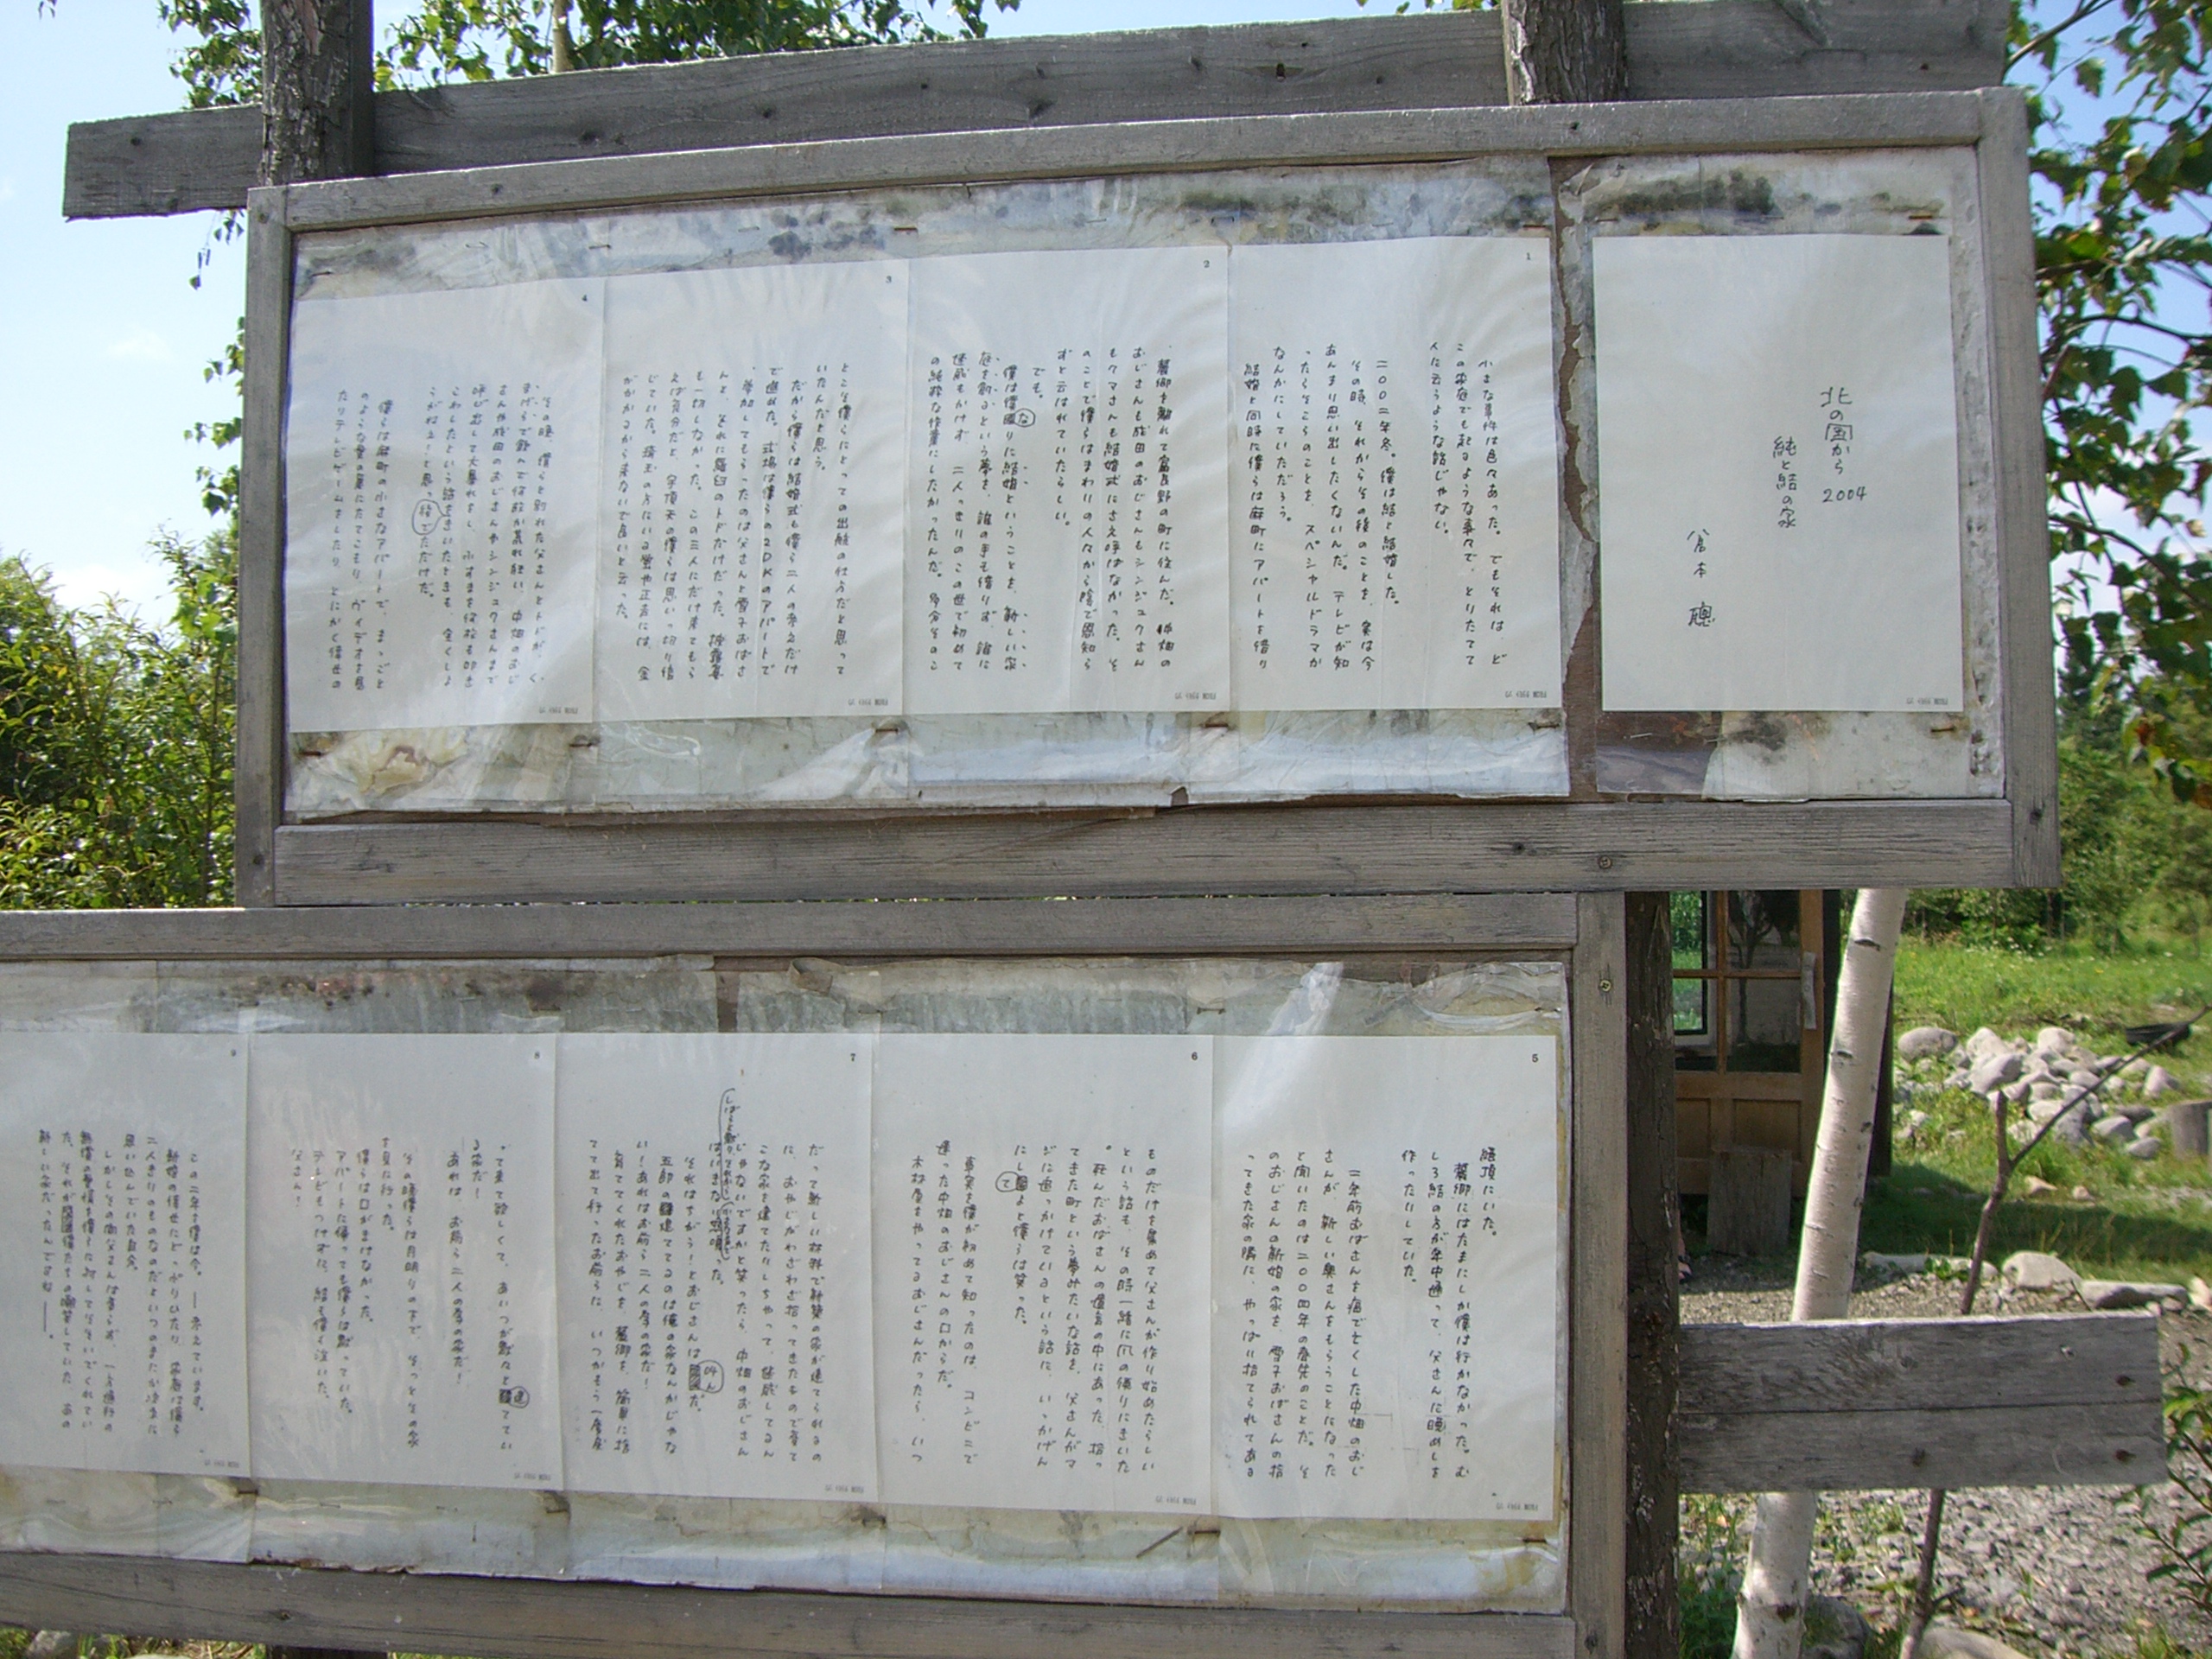 北の国から
2004
純と結の家
倉本 聰
1
小さな事件は色々あった。でもそれは、ど
この家庭でも起るような事々で、とりたてて
人に云うような話じゃない。
二〇〇二年冬。僕は結と結婚した。
その時、それからその後のことを、実は今
あんまり思い出したくないんだ。テレビが知
ったらそこらのことを、スペシャルドラマか
なんかにしていただろう。
結婚と同時に僕らは麻町にアパートを借り
2
、麓郷を離れて富良野の町に住んだ。中畑の
おじさんも成田のおじさんもシンジュクさん
もクマさんも結婚式にさえ呼ばなかった。そ
のことで僕らはまわりの人々から陰で恩知ら
ずと云はれていたらしい。
でも。
僕は僕なりに結婚ということを、新しい家
庭を創るという夢を、誰の手も借りず、誰に
迷惑もかけず、二人っきりのこの世で初めて
の純粋な作業にしたかったんだ。多分そのこ
3
とこそ僕らにとっての出発の仕方だと思って
いたんだと思う。
だから僕らは結婚式も僕ら二人の考えだけ
で進めた。式場は僕らの2DKのアパートで
、参加してもらったのは父さんと雪子おばさ
んと、それに羅臼のトドだけだった。披露宴
も一切しなかった。この三人にだけ来てもら
えば充分だと、有頂天の僕らは思いっ切り信
じていた。埼玉の方にいる螢や正吉には、金
がかかるから来ないで良いと云った。
4
その晩、僕らと別れた父さんとトドが、く
まげらで飲んで何故か荒れ狂い、中畑のおじ
さんや成田のおじさんやシンジュクさんまで
呼び出して大暴れをし、ふすまを何枚も叩き
こわしたという話をきいたときも、全くしょ
うがねえ!と思っただけだ。
後で
僕らは麻町の小さなアパートで、まっこと
のような愛の巣にたてこもり、ヴィデオを観
たりテレビゲームをしたり、とにかく倖せの
5
絶頂にいた。
麓郷にはたまにしか僕は行かなかった。む
しろ結の方が年中通って、父さんに晩めしを
作ったりしていた。
二年前おばさんを癌で亡くした中畑のおじ
さんが、新しい奥さんをもらうことになった
と聞いたのは二〇〇四年の春先のことだ。そ
のおじさんの新婚の家を、雪子おばさんの拾
ってきた家の隣に、やっぱり拾てられてある
6
ものだけを集めて父さんが作り始めたらしい
という話も、その時一緒に風の便りにきいた
。死んだおばさんの遺言の中にあった、拾っ
てきた町という夢みたいな話を、父さんがマ
ジに追っかけているという話に、いっかげん
にしてよと僕らは笑った。
事実を僕が初めて知ったのは、コンビニで
逢った中畑のおじさんの口からだ。
木材屋をやってるおじさんだったら、いつ
7
だって新しい材料で新築の家が建てられるの
に、おやじがわざわざ拾ってきたもので育て
こな家を建てたりしちゃって、迷惑してるん
じゃないですかと笑ったら、中畑のおじさん
はいきなり
それはちがう!とおじさんは叫んだ。
五郎の建ててるのは俺の家なんかじゃな
い!あれはお前ら二人の為の家だ!
育ててくれたおやじを、麓郷を、簡単に捨
てて出て行ったお前らに、いつかもう一度戻
8
って来て欲しくて、あいつが黙々と建ててい
る家だ!
あれは お前ら二人の為の家だ!
その晩僕らは月明りの下で、そっとその家
を見に行った。
僕らは口がきけなかった。
アパートに帰っても僕らは黙っていた。
テレビもつけずに、結も僕も泣いた。
父さん!
9
この二年を僕は今。――考えています。
新婚の倖せにどっぷりひたり、家庭は僕ら
二人きりのものなのだといつのまにか決手に
思い込んでいた自分。
しかしその間父さんは考らず、一方通行の
無償の愛情を僕らに対してそそいでくれてい
た。それが僕たちの嘲笑していた、あの
新しい家だったんですね――。